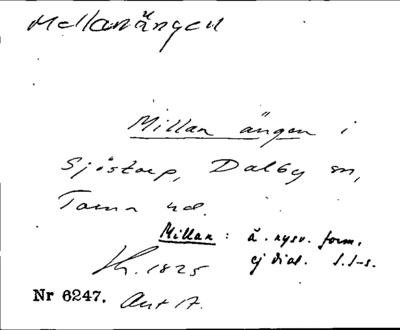 Mellanängen
Millan ängen i
Sjöstorp, Dalby sn,
Torna hd.
Millan: ä. nysv. form,
ej dial.
Lh. 1825
Nr 6247. Akt 17.